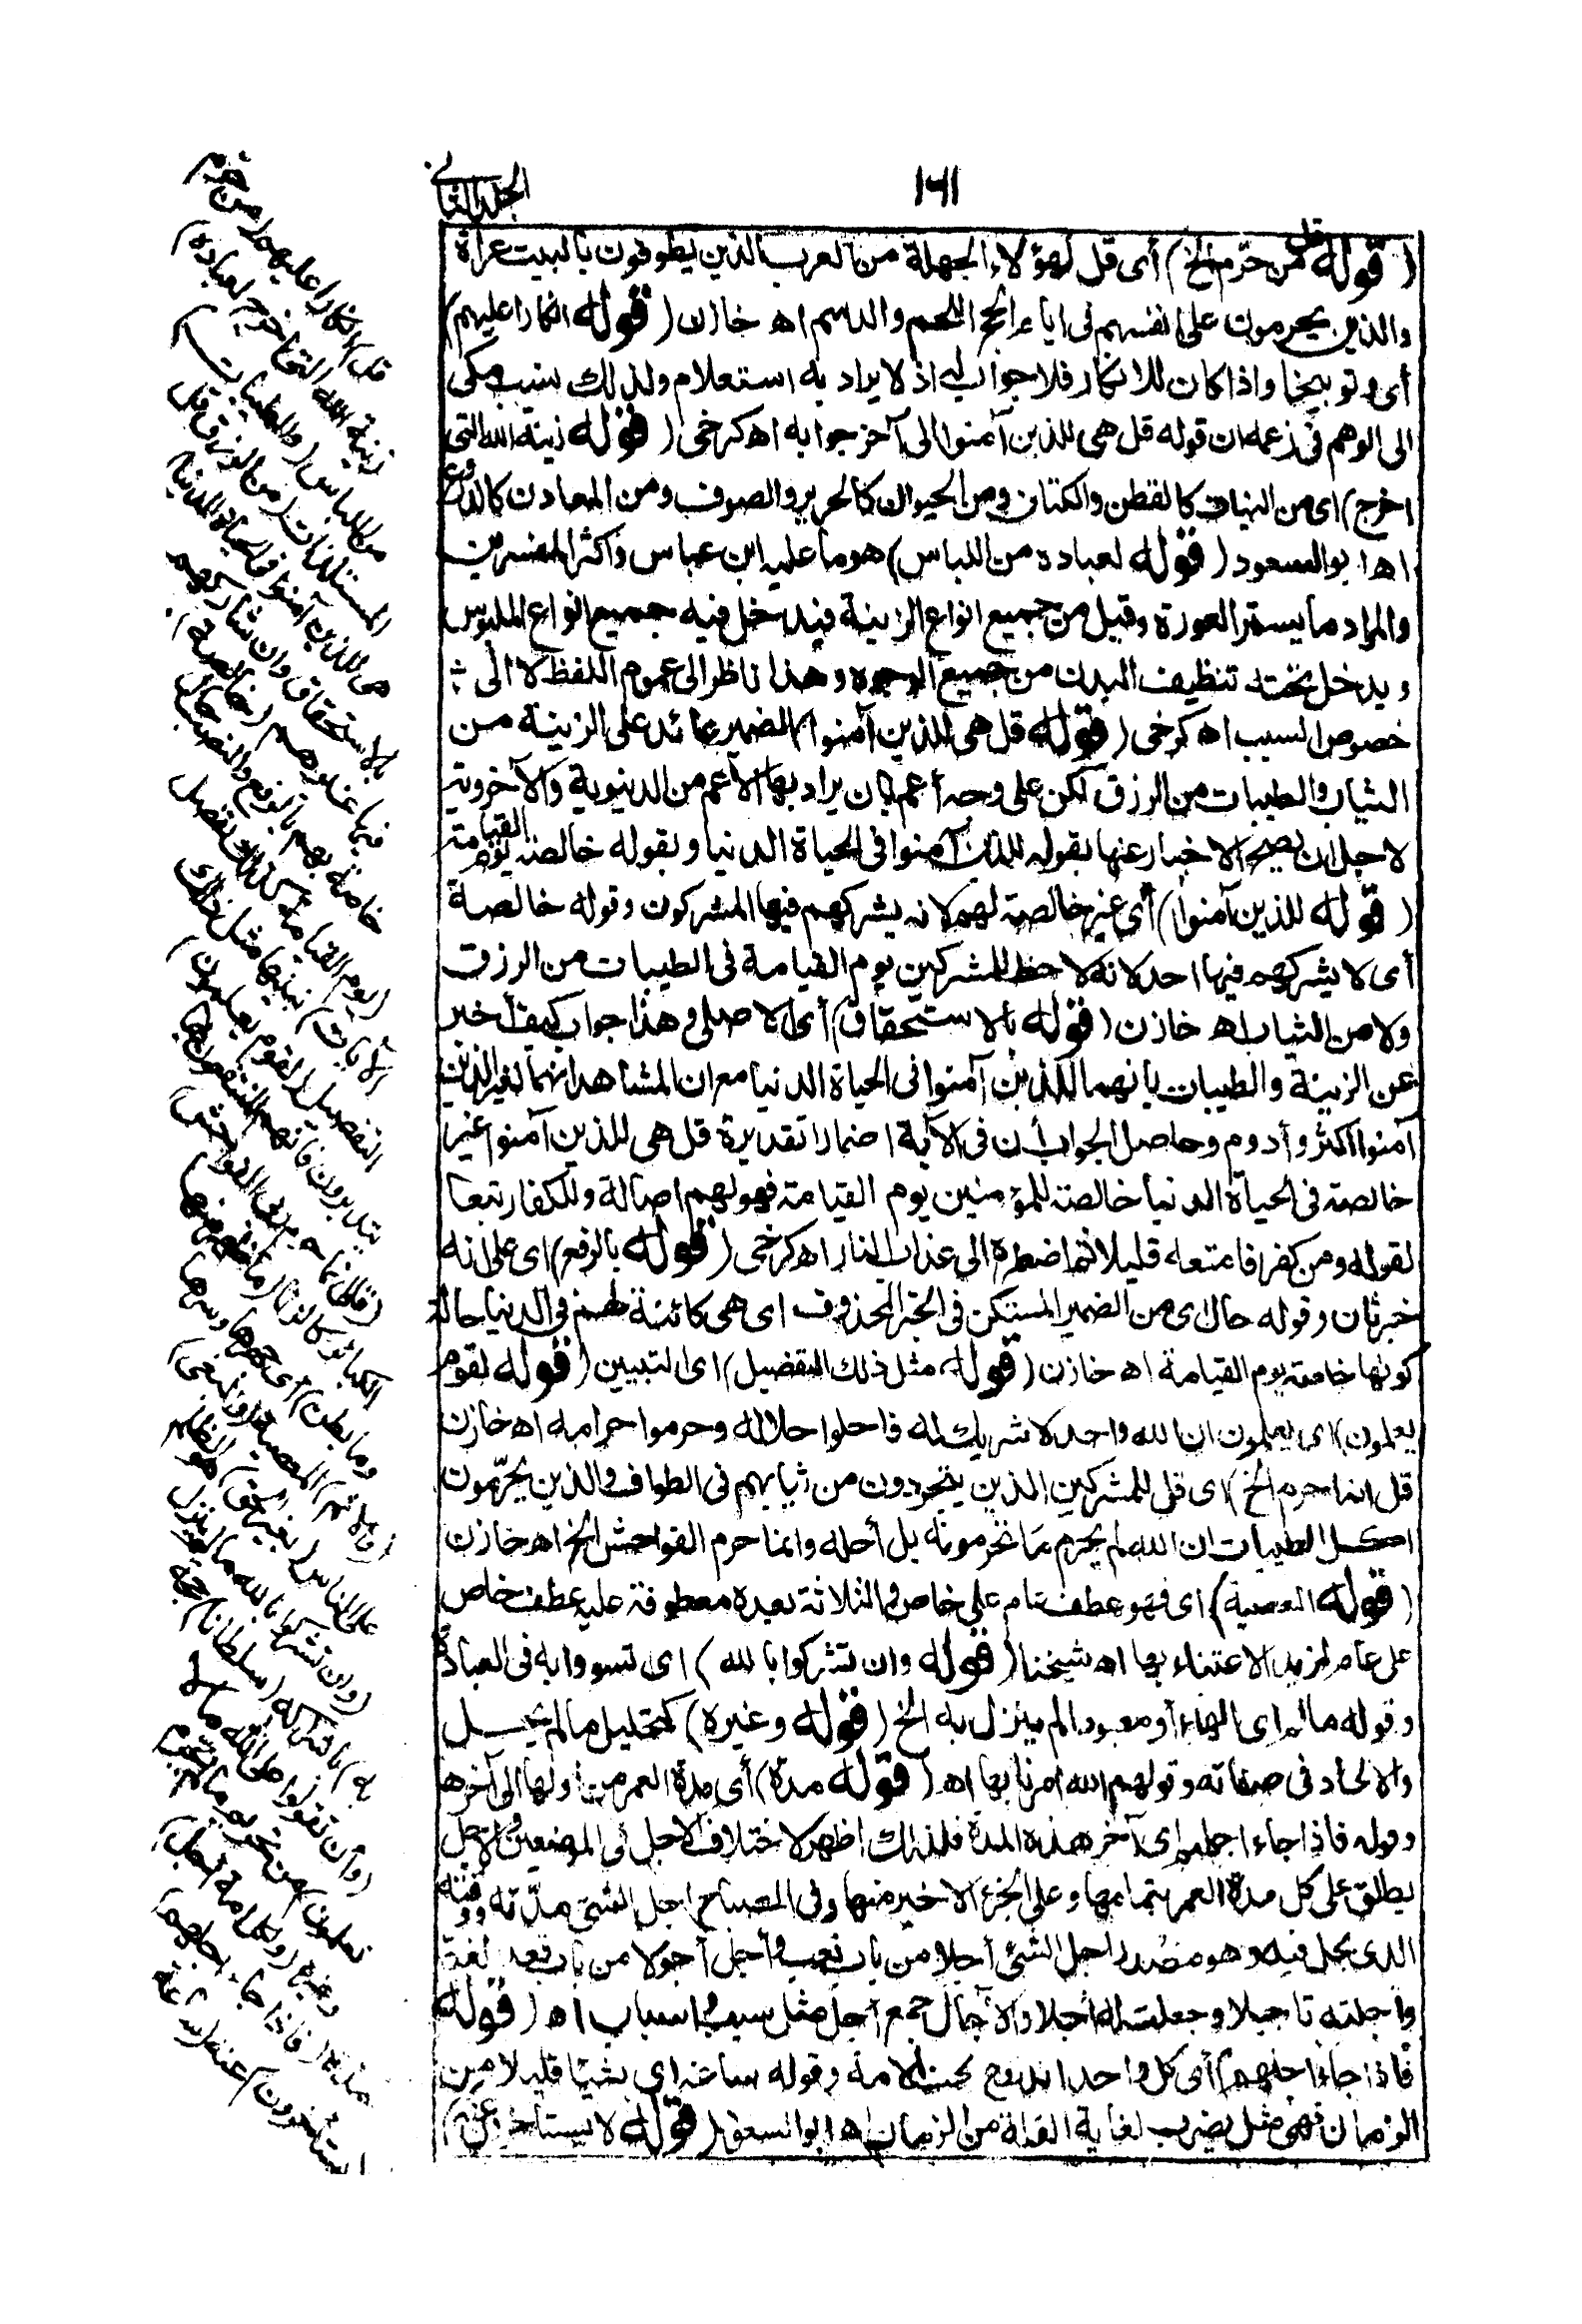 ١٦١
الجلد الثاني
(قوله قل من حرّم الخ) أى قل لهؤلاء الجهلة من العرب الذين يطوفون بالبيت عراة
والذين يحرمون على أنفسهم فى ايام الحج اللحم والدسم اه خازن (قوله انكارا عليهم)
أى وتوبيخا واذا كان للانكار فلا جواب له اذ لا يراد به استعلام ولذلك نسب مكى
الى الوهم فى زعمه ان قوله قل هى للذين آمنوا الى آخره جوابه اه كرخى (قوله زينة الله التى
اخرج) اى من النبات كالقطن والكتان ومن الحيوان كالحرير والصوف ومن المعادن كالدروع
اه ابو السعود (قوله لعباده من اللباس) هو ما عليه ابن عباس واكثر المفسرين
والمراد ما يستر العورة وقيل من جميع انواع الزينة فيدخل فيه جميع انواع الملبوس
ويدخل تحته تنظيف البدن من جميع الوجوه وهذا ناظر الى عموم اللفظ لا الى
خصوص السبب اه كرخى (قوله قل هى للذين آمنوا) الضمير عائد على الزينة من
الثياب والطيبات من الرزق لكن على وجه أعم بان يراد بها الأعم من الدنيوية والآخروية
لاجل ان يصح الاخبار عنها بقوله للذين آمنوا فى الحياة الدنيا وبقوله خالصة يوم القيامة
(قوله للذين آمنوا) أى غير خالصة لهم لانه يشركهم فيها المشركون وقوله خالصة
أى لا يشركهم فيها احد لانه لا حظ للمشركين يوم القيامة فى الطيبات من الرزق
ولا من الثياب اه خازن (قوله بالاستحقاق) أى الاصلى وهذا جواب كيف أخبر
عن الزينة والطيبات بانهما للذين آمنوا فى الحياة الدنيا مع ان المشاهد انهما لغير الذين
آمنوا اكثر وأدوم وحاصل الجواب أن فى الآية اضمارا تقديره قل هى للذين آمنوا غير
خالصة فى الحياة الدنيا خالصة للمؤمنين يوم القيامة فهو لهم اصالة وللكفار تبعا
لقوله ومن كفر فامتعه قليلا ثم اضطره الى عذاب النار اه كرخى (قوله بالرفع) اى على انه
خبر ثان وقوله حال اى من الضمير المستكن فى الخبر المحذوف اى هى كائنة لهم فى الدنيا حالة
كونها خاصة يوم القيامة اه خازن (قوله مثل ذلك التفصيل) اى التبيين (قوله لقوم
يعلمون) اى يعلمون ان الله واحد لا شريك له فاحلوا حلاله وحرموا حرامه اه خازن
قل انما حرم الخ) اى قل للمشركين الذين يتجردون من ثيابهم فى الطواف والذين يحرّمون
اكل الطيبات ان الله لم يحرم ما تحرمونه بل أحله وانما حرم الفواحش الخ اه خازن
(قوله المعصية) اى فهو عطف عام على خاص والثلاثة بعده معطوفة عليه عطف خاص
على عام لمزيد الاعتناء بها اه شيخنا (قوله وان تشركوا بالله) اى تسووا به فى العبادة
وقوله ما لم اى الها أو معبودا لم ينزل به الخ (قوله وغيره) كتحليل ما لم يحل
والالحاد فى صفاته وقولهم الله امرنا بها اه (قوله مدة) أى مدة العمر من أولها الى آخرها
وقوله فاذا جاء اجلهم اى آخر هذه المدة فلذلك اظهر لاختلاف الاجل فى الموضعين والاجل
يطلق على كل مدة العمر بتمامها وعلى الجزء الاخير منها وفى المصباح اجل الشئ مدّته ووقته
الذى يحل فيه وهو مصدر اجل الشئ أجلا من باب تعب وأجل أجولا من باب قعد لغة
واجلته تاجيلا وجعلت له أجلا والآجال جمع أجل مثل سبب واسباب اه (قوله
فاذا جاء اجلهم) أى كل واحد اندرج تحت الامة وقوله ساعة اى شيئا قليلا من
الزمان فهى مثل يضرب لغاية القلة من الزمان اه ابو السعود (قوله لا يستاخرون عنه)
قل) انكارا عليهم (من حرم
زينة الله التى اخرج لعباده)
من اللباس (والطيبات)
المستلذات (من الرزق قل
هى للذين آمنوا فى الحياة الدنيا)
بالاستحقاق وان شاركهم
فيها غيرهم (خالصة)
خاصة بهم بالرفع والنصب حال
(يوم القيامة كذلك نفصل
الآيات) نبينها مثل ذلك
التفصيل (لقوم يعلمون)
يتدبرون فانهم المنتفعون بها
(قل انما حرم ربى الفواحش)
الكبائر كالزنا (ما ظهر منها
وما بطن) أى جهرها وسرها
(والاثم) المعصية (والبغى)
على الناس (بغير الحق) هو الظلم
(وان تشركوا بالله ما لم ينزل
به) باشراكه (سلطانا) حجة
(وأن تقولوا على الله ما لا
تعلمون) من تحريم ما لم يحرم
وغيره (ولكل امة اجل)
مدة (فاذا جاء اجلهم
لا يستاخرون) عنه (ساعة